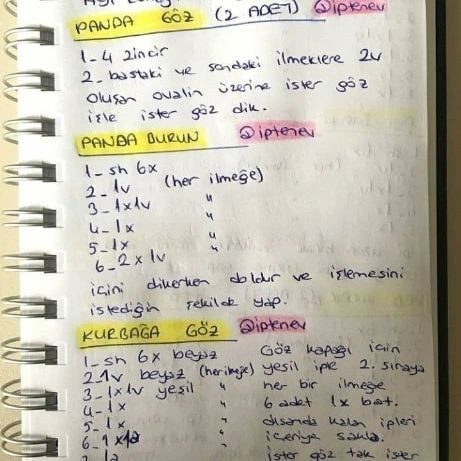 PANDA GÖZ (2 ADET) @iptenev
1- 4 zincir
2- bastaki ve sondaki ilmeklere 2v
oluşan ovalin üzerine ister göz
işle ister göz dik.
PANDA BURUN @iptenev
1- sh 6x
2- 1v (her ilmeğe)
3- 1x1v "
4- 1x "
5- 1x "
6- 2x1v
içini dikerken doldur ve işlemesini
istediğin şekilde yap.
KURBAĞA GÖZ @iptenev
1- sh 6x beyaz Göz kapağı için
2- 1v beyaz (her ilmeğe) yeşil iple 2. sıraya
3- 1x1v yeşil " her bir ilmeğe
4- 1x " 6 adet 1x bat.
5- 1x " dışarıda kalan ipleri
6- 1x1a " içeriye sakla.
ister göz tak ister